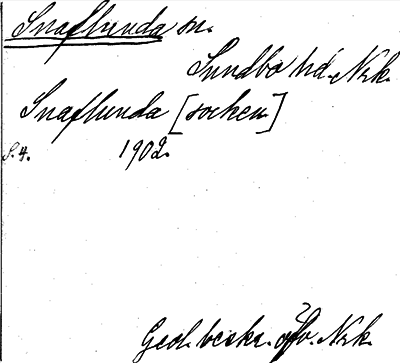 Snaflunda sn.
Sundbo hd. Nrk.
Snaflunda [socken]
S. 4. 1902.
Geol. beskr. öfv. Nrk.